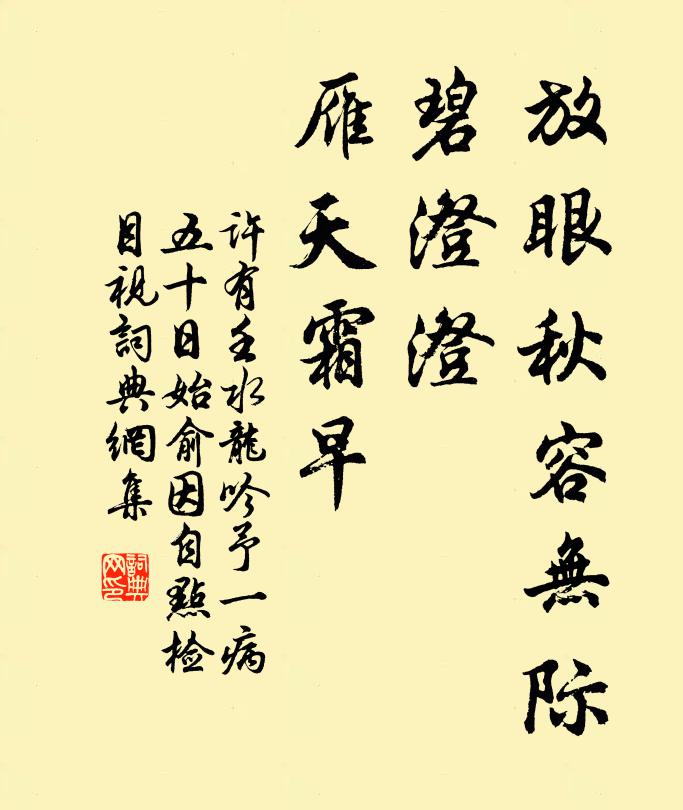 放眼秋容無际
碧澄澄
雁天霜早
许有壬水龍吟予一病
五十日始俞因自點检
目視詞典網集
詞典
网印